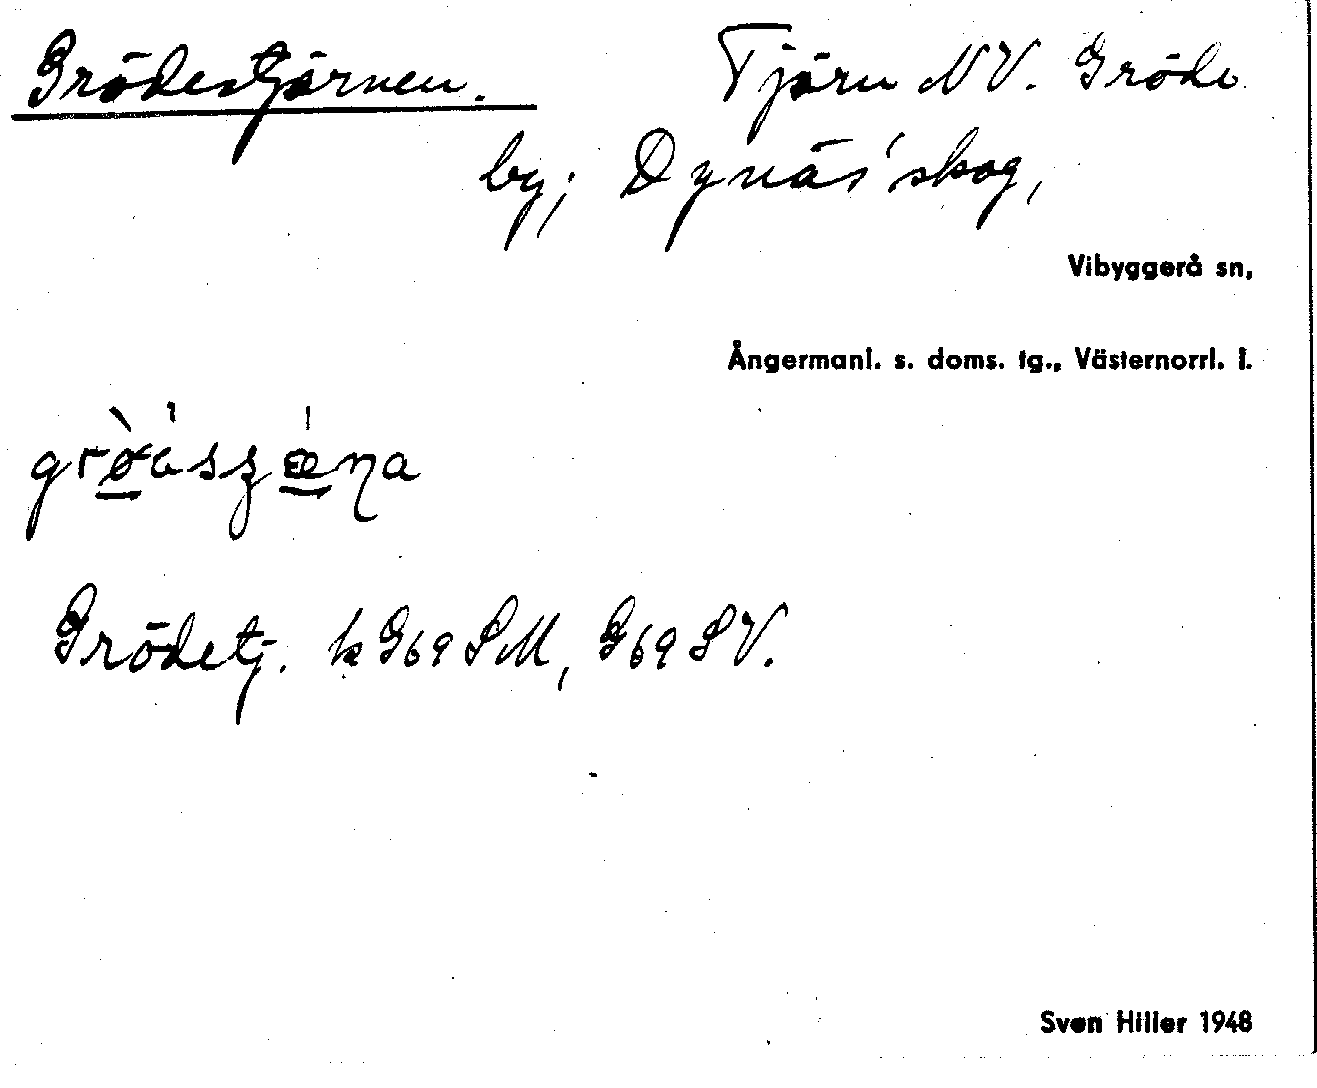 Grödestjärnen. Tjärn NV. Gröde
by; Dynäs' skog,
Vibyggerå sn,
Ångermanl. s. doms. tg., Västernorrl. l.
Grödetj. k G69 SM, G69 SV.
Sven Hiller 1948